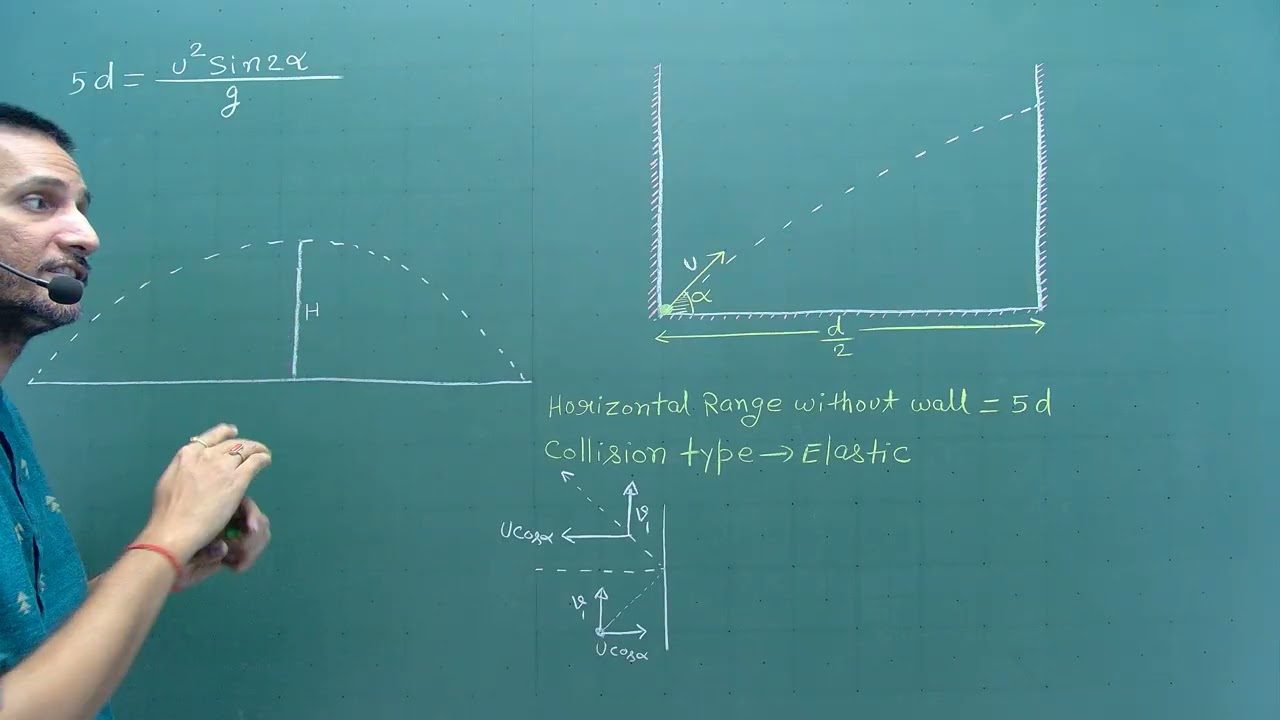 5d = u² sin2α / g
H
u
α
d/2
Horizontal Range without wall = 5d
Collision type → Elastic
v₁
ucosα
v₁
ucosα